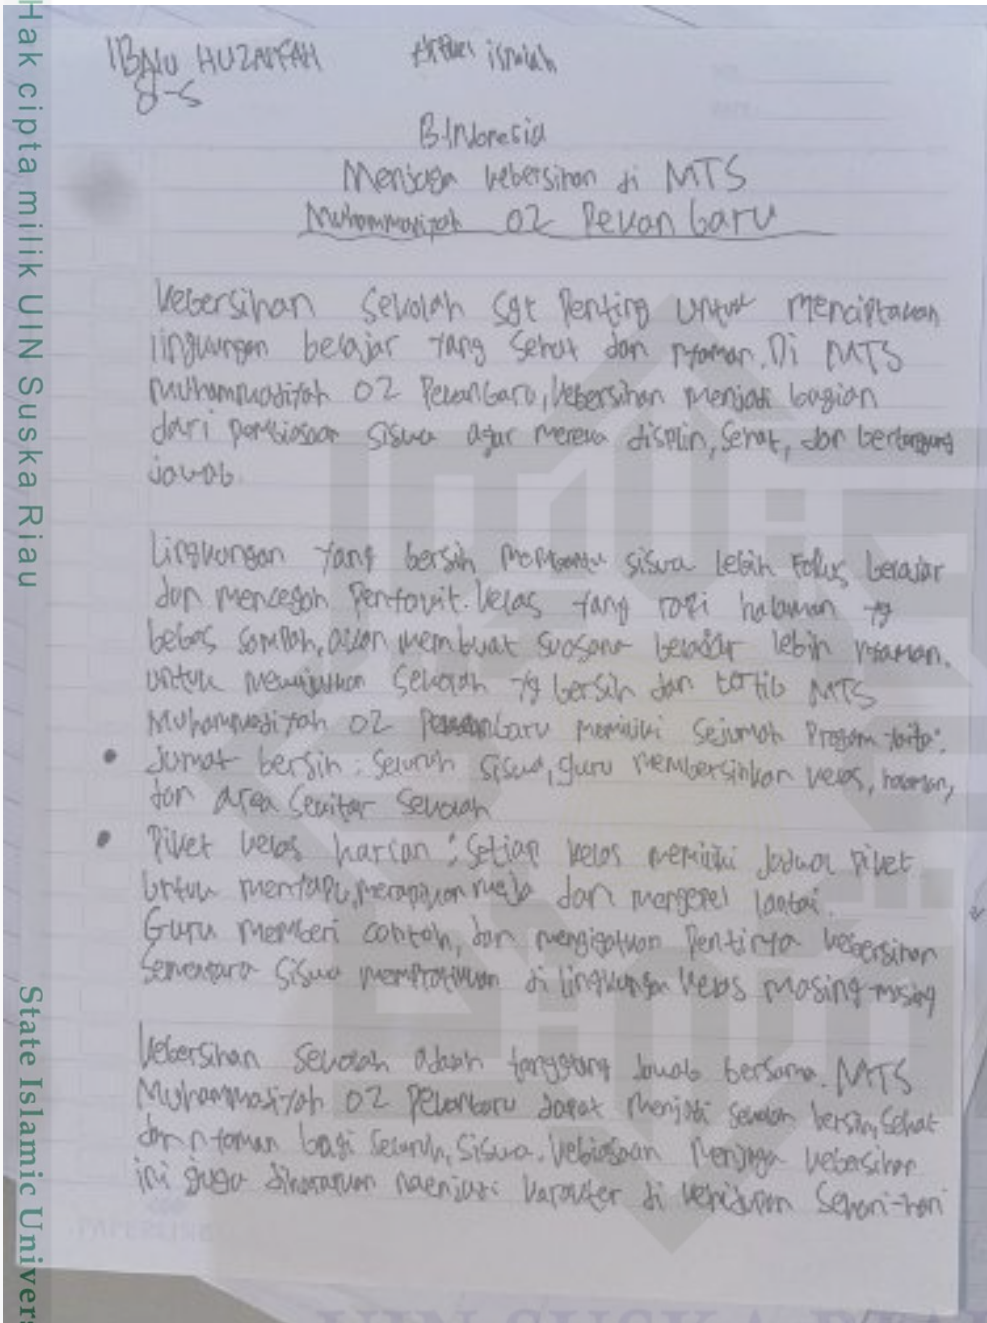 Hak cipta milik UIN Suska Riau
State Islamic Univers
IBNU HUZAIFAH
8-5
B.Indonesia
Menjaga kebersihan di MTS
Muhammadiyah 02 Pekanbaru
Kebersihan Sekolah sgt Penting untuk menciptakan
lingkungan belajar yang Sehat dan nyaman. Di MTS
Muhammadiyah 02 Pekanbaru, kebersihan menjadi bagian
dari pembiasaan siswa agar mereka displin, Sehat, dan bertanggung
jawab.
Lingkungan yang bersih membantu siswa Lebih Fokus berajar
dan mencegah Penyakit. Kelas yang rapi halaman yg
bebas sampah, akan membuat suasana belajar lebih nyaman.
Untuk mewujudkan Sekolah yg bersih dan tertib MTS
Muhammadiyah 02 Pekanbaru memiliki Sejumlah Program
• Jumat bersih : Seluruh siswa, guru membersihkan kelas, halaman,
dan area Sekitar Sekolah
• Piket kelas harian : Setiap kelas memiliki Jadwal Piket
Untuk menyapu, merapikan meja dan mengepel lantai.
Guru memberi contoh, dan mengigatkan Pentinya kebersihan
Sementara siswa mempraktikan di lingkungan kelas masing-masing
Kebersihan Sekolah adalah tanggung Jawab bersama. MTS
Muhammadiyah 02 Pekanbaru dapat menjadi Sekolah bersih, Sehat
dan nyaman bagi Seluruh, Siswa. Kebiasaan Menjaga kebersihan
ini juga diharapkan karakter di kehidupan Sehari-hari
UIN SUSKA RIAU